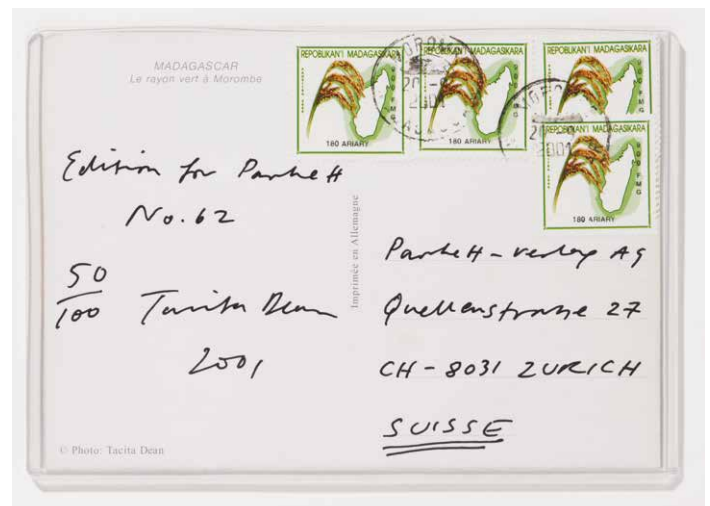 MADAGASCAR
Le rayon vert à Morombe
REPOBLIKAN'I MADAGASIKARA
180 ARIARY
REPOBLIKAN'I MADAGASIKARA
180 ARIARY
REPOBLIKAN'I MADAGASIKARA
REPOBLIKAN'I MADAGASIKARA
900 FMG
180 ARIARY
2001
2001
Edition for Parkett
No. 62
50/100 Tacita Dean
2001
Imprimée en Allemagne
Parkett-Verlag AG
Quellenstrasse 27
CH-8031 ZURICH
SUISSE
© Photo: Tacita Dean